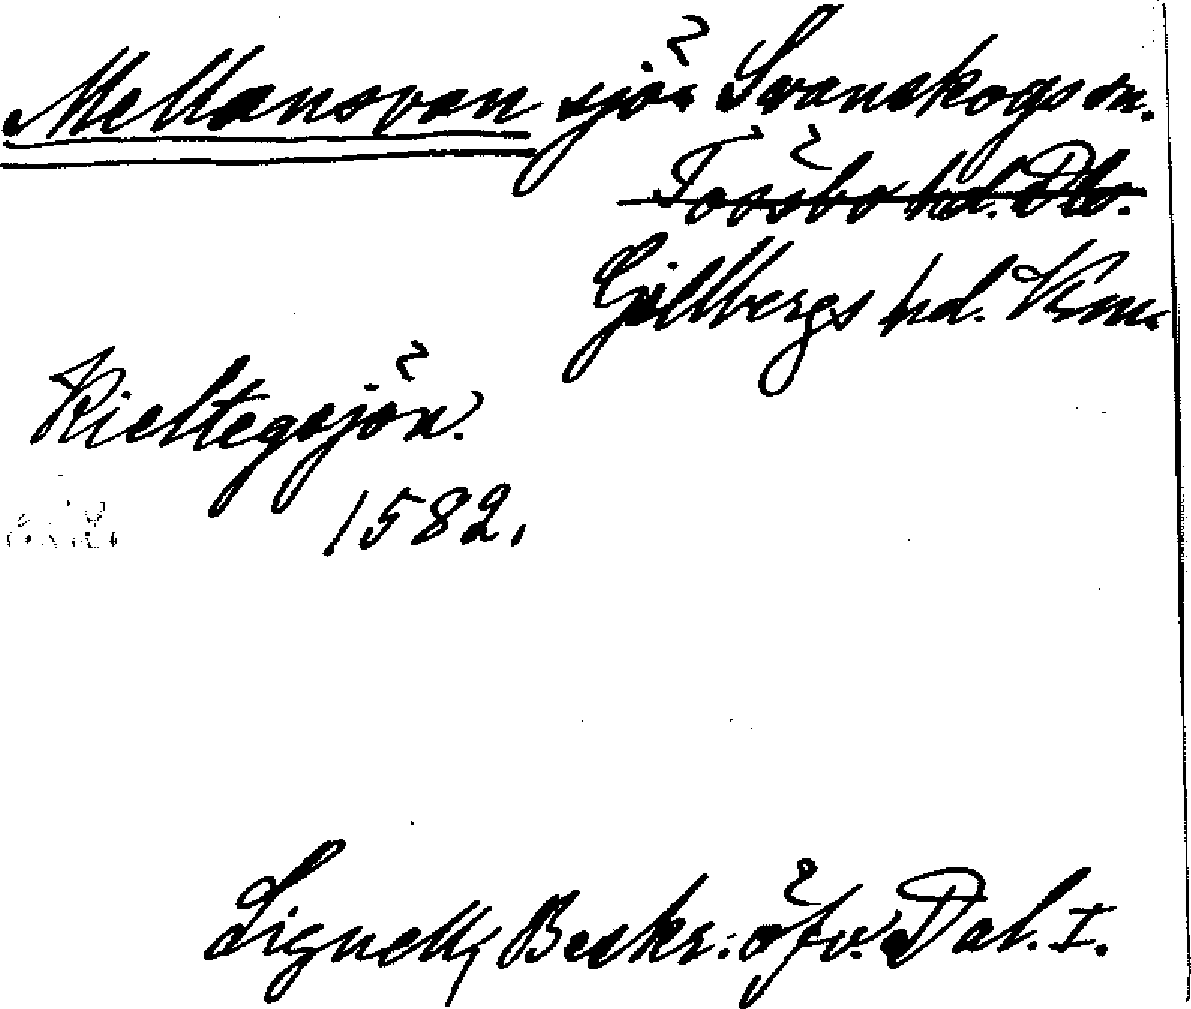 Mellansvan sjön Svanskogs sn.
Tössbo hd. Dls.
Gillbergs hd. Vrm.
Kieltegsjön.
1582.
Lignell, Beskr. öfv. Dal. I.